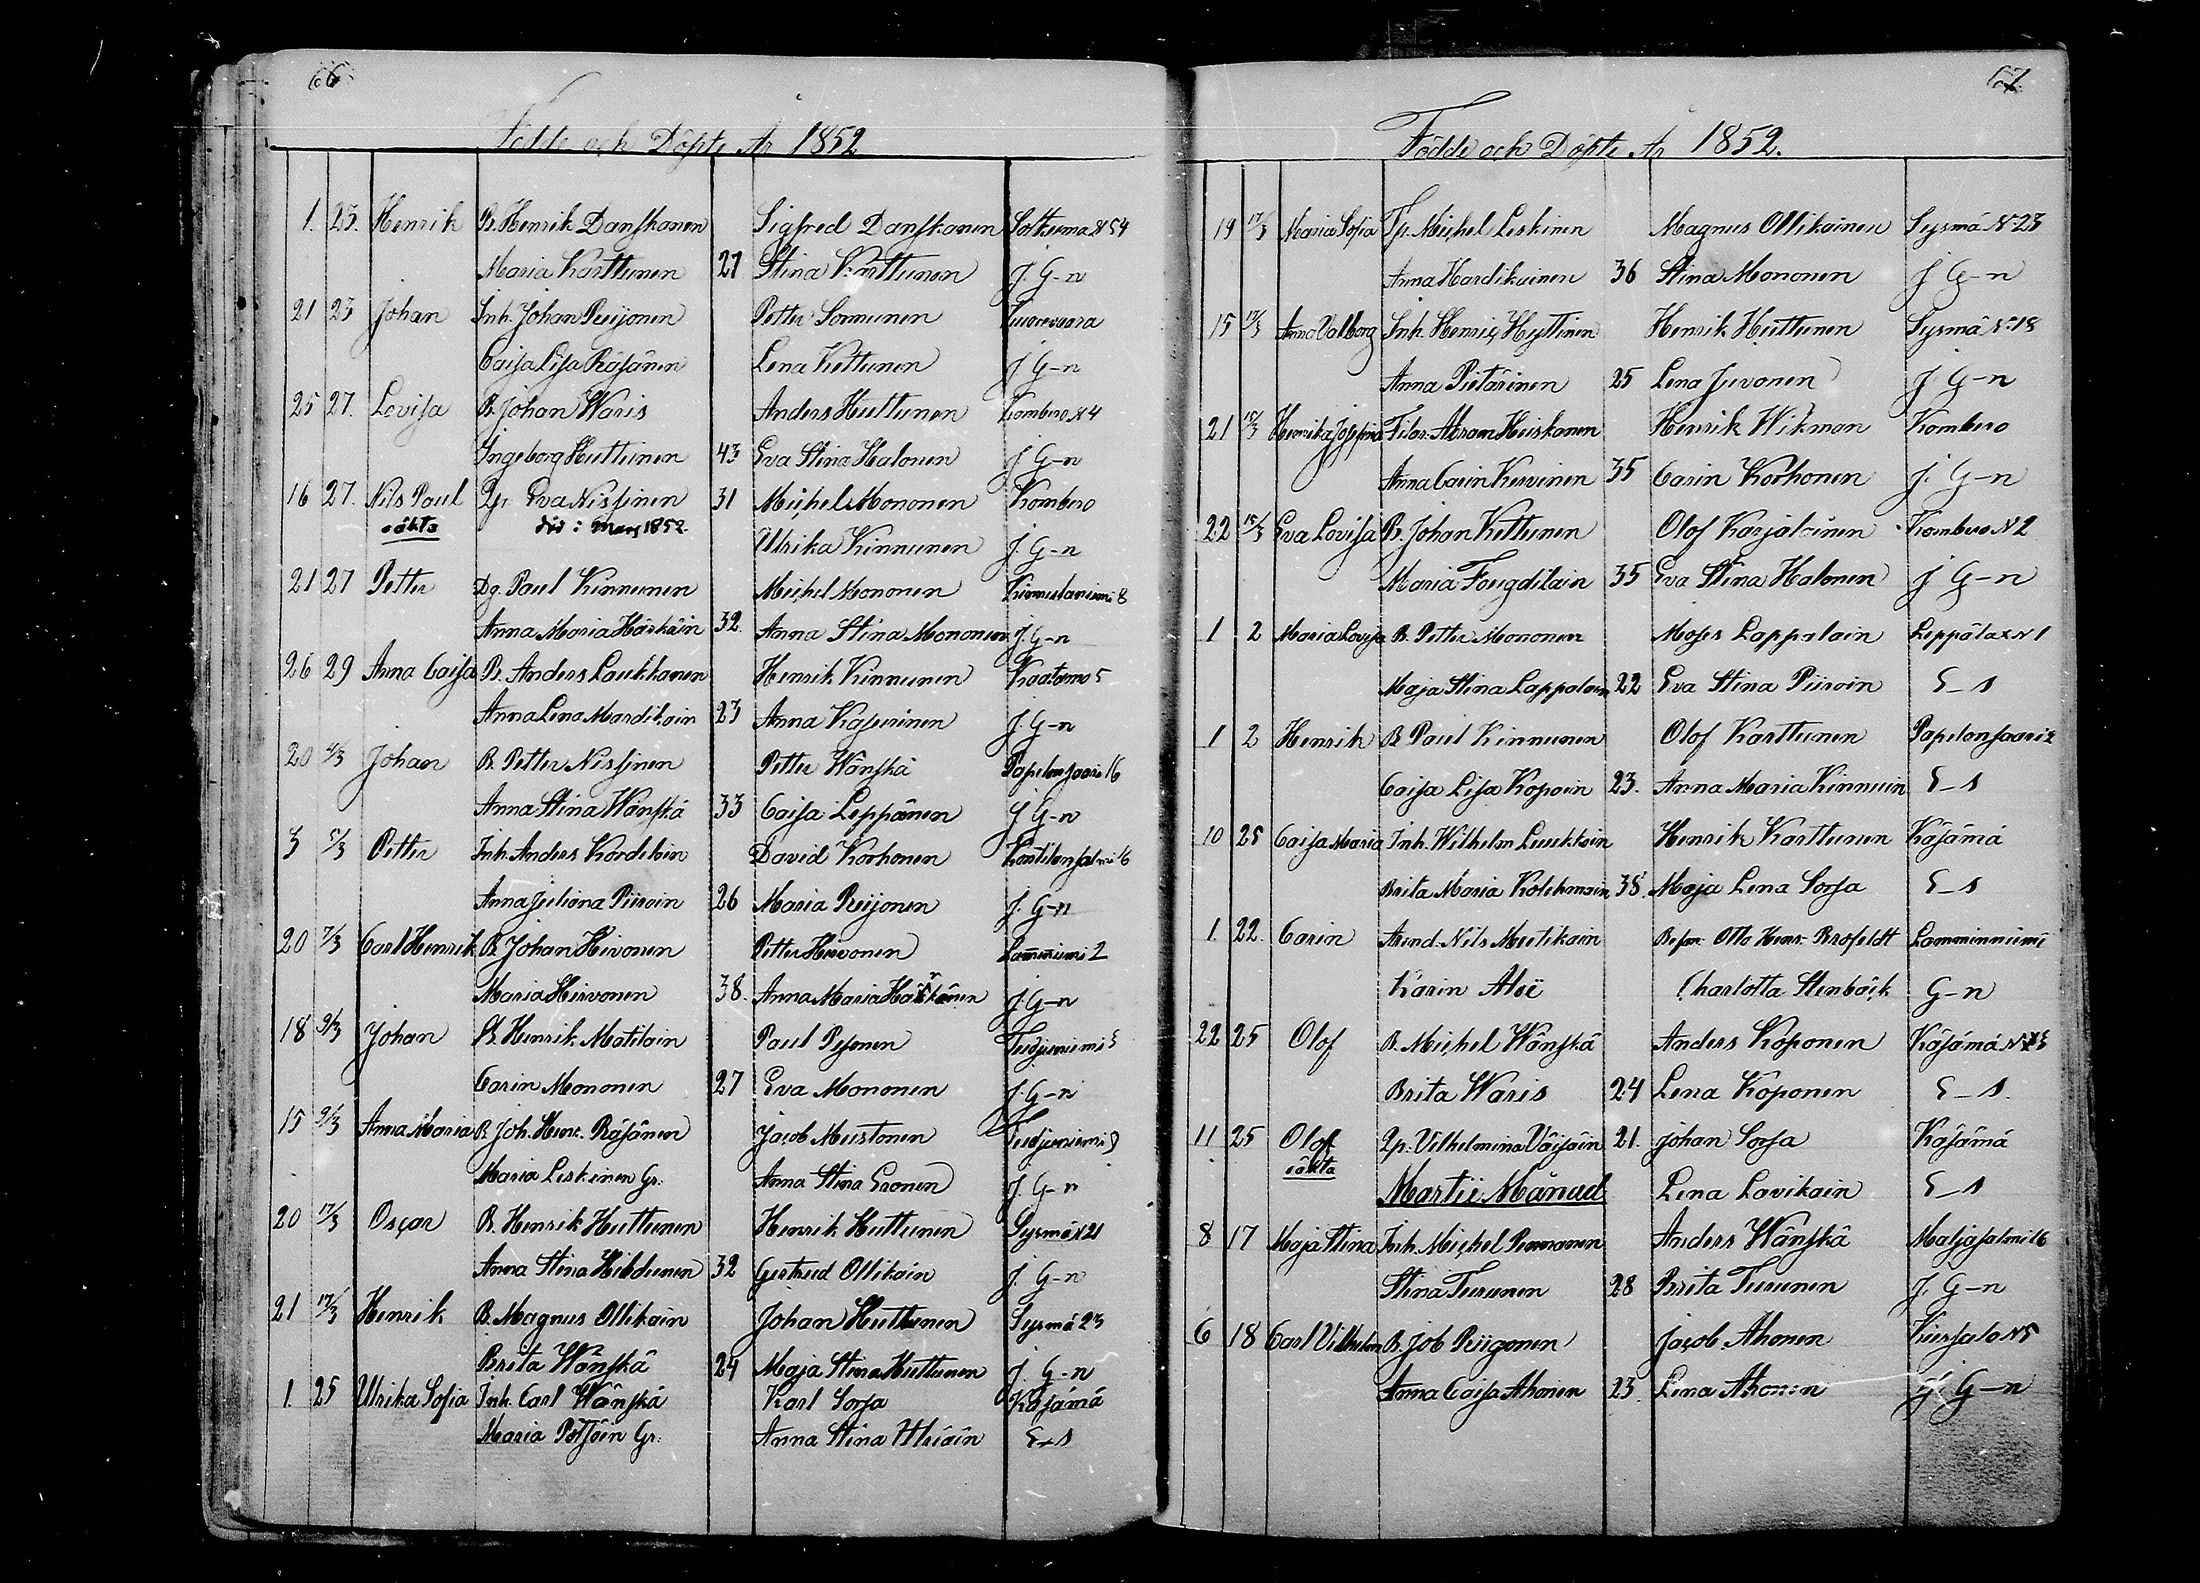 66
Födde och Döpte År 1852
1. 25. Henrik B. Henrik Danskanen Sigfred Danskanen Sotkuma N 54
Maria Karttunen 27 Stina Karttunen J. G-n
21 23 Johan Inh. Johan Reijonen Petter Sormunen
Caisa Lisa Räsänen Lena Kettunen J G-n
25 27. Lovisa B. Johan Waris Anders Huttunen Kombero N 4
Ingeborg Huttunen 43 Eva Stina Halonen J G-n
16 27. Nils Paul Eva Nissinen 31 Michel Mononen Kombero
oäkta Mars 1852
Ulrika Kinnunen J. G-n
21 27 Petter Dg. Paul Kinnunen Michel Mononen
Anna Maria Härkäin 32. Anna Stina Mononen J. G-n
26 29 Anna Caisa B. Anders Laukkanen Henrik Kinnunen Kaatamo 5
Anna Lena Mardikain 23 Anna Kasurinen J. G-n
20 4/3 Johan B. Petter Nissinen Petter Wänskä Papelonsaari 16
Anna Stina Wänskä 33 Caisa Leppänen J G-n
3 5/3 Petter Inh. Anders Kordelain David Korhonen Kontilansalmi 16
Anna Juliana Piiroin 26 Maria Reijonen J. G-n
20 7/3 Carl Henrik B. Johan Hirvonen Petter Hirvonen Lamminniemi 2
Maria Hirvonen 38. Anna Maria Härkänen J. G-n
18 9/3 Johan B. Henrik Matilain Paul Pesonen
Carin Mononen 27 Eva Mononen J. G-n
15 9/3 Anna Maria B. Joh. Henr. Räsänen Jacob Mustonen
Maria Leskinen Gr. Anna Stina Eronen J. G-n
20 17/3 Oscar B. Henrik Huttunen Henrik Huttunen Sysmä N 21
Anna Stina Hildunen 32 Gertrud Ollikain J. G-n
21 17/3 Henrik B. Magnus Ollikain Johan Huttunen Sysmä 23
Brita Wänskä 24 Maja Stina Huttunen J. G-n
1. 25 Ulrika Sofia Inh. Carl Wänskä Karl Sorsa Käsämä
Maria Pötsöin Gr. Anna Stina Utriain E-s
67.
Födde och Döpte År 1852.
19 17/3 Maria Sofia Michel Leskinen Magnus Ollikainen Sysmä N 23
Anna Hardikainen 36 Stina Mononen J G-n
15 17/3 Anna Valborg Inh. Henric Hyttinen Henrik Huttunen Sysmä N 18
Anna Pietärinen 25 Lena Juvonen J. G-n
21 15/3 Henrika Josefina Abram Heiskanen Henrik Wikman Kombero
Anna Carin Kervinen 35 Carin Korhonen J. G-n
22 15/3 Eva Lovisa B. Johan Kettunen Olof Karjalainen Kombero N 2
Maria Fougdilain 35 Eva Stina Halonen J G-n
1 2 Maria Lovisa B. Petter Mononen Moses Lappalain Leppälax N 1
Maja Stina Lappalain 22 Eva Stina Piiroin E-s
1 2 Henrik B Paul Kinnunen Olof Karttunen Papelonsaari 2
Caisa Lisa Kopoin 23. Anna Maria Kinnuin E-s
10 25 Caisa Maria Inh. Wilhelm Luukkain Henrik Karttunen Käsämä
Brita Maria Kolehmain 38. Maja Lena Sorsa E-s
1. 22. Carin Arend. Nils Mutikain Otto Henr. Brofeldt Lamminniemi
Karin Aloë Charlotta Stenbäck G-n
22 25 Olof B. Michel Wänskä Anders Koponen Käsämä N
Brita Waris 24 Lena Koponen E-s.
11 25 Olof Vilhelmina Väisäin 21. Johan Sorsa Käsämä
oäkta
Martii Månad Lena Lavikain E-s
8 17 Maja Stina Inh. Michel Pennanen Anders Wänskä Maljasalmi 16
Stina Turunen 28 Brita Turunen J. G-n
6 18 Carl Vilhelm B. Job Riigonen Jacob Ahonen Kuusalo N 5
Anna Caisa Ahonen 23. Lena Ahonen J. G-n